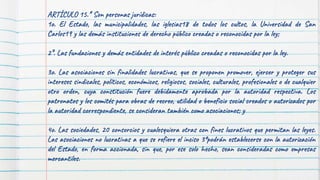 ARTÍCULO 15.* Son personas jurídicas:
1o. El Estado, las municipalidades, las iglesias18 de todos los cultos, la Universidad de San
Carlos19 y las demás instituciones de derecho público creadas o reconocidas por la ley;
2º. Las fundaciones y demás entidades de interés público creadas o reconocidas por la ley.
3o. Las asociaciones sin finalidades lucrativas, que se proponen promover, ejercer y proteger sus
intereses sindicales, políticos, económicos, religiosos, sociales, culturales, profesionales o de cualquier
otro orden, cuya constitución fuere debidamente aprobada por la autoridad respectiva. Los
patronatos y los comités para obras de recreo, utilidad o beneficio social creados o autorizados por
la autoridad correspondiente, se consideran también como asociaciones; y
4o. Las sociedades, 20 consorcios y cualesquiera otras con fines lucrativos que permitan las leyes.
Las asociaciones no lucrativas a que se refiere el inciso 3ºpodrán establecerse con la autorización
del Estado, en forma accionada, sin que, por ese solo hecho, sean consideradas como empresas
mercantiles.